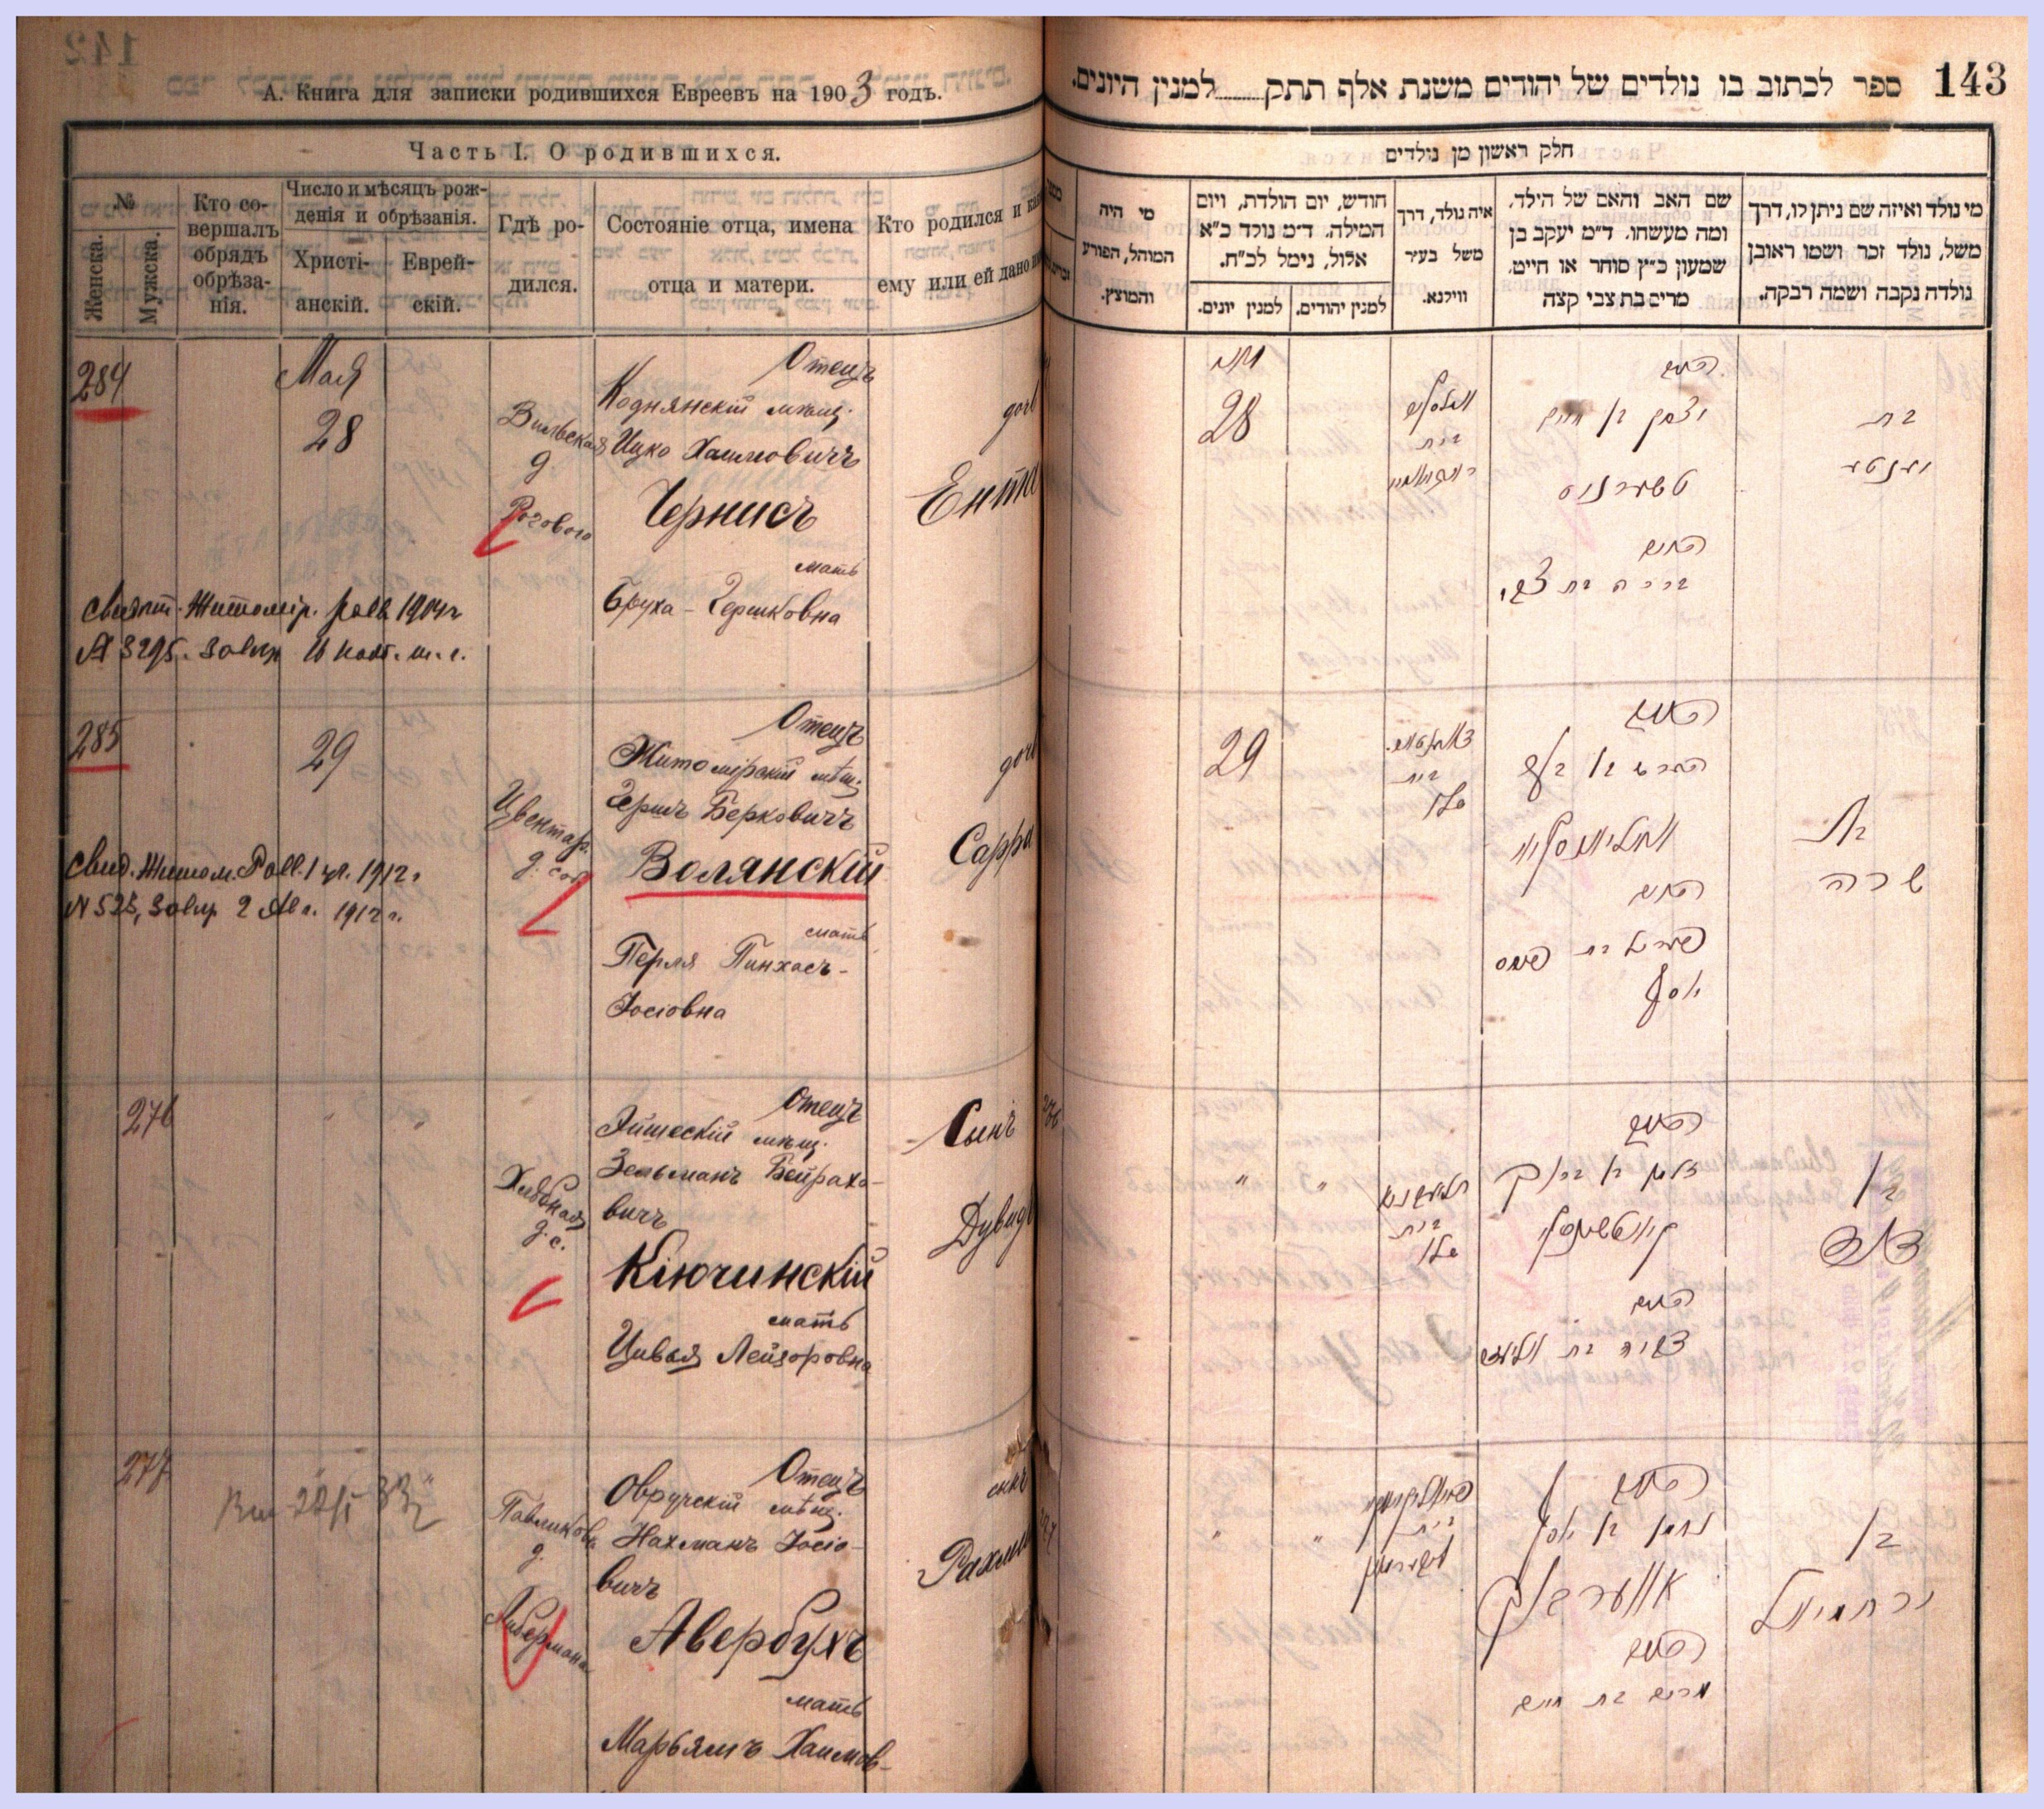 А. Книга для записки родившихся Евреевъ на 1903 годъ.
Часть I. О родившихся.
№
Женска.
Мужска.
Кто со-
вершалъ
обрядъ
обрѣза-
нія.
Число и мѣсяцъ рож-
денія и обрѣзанія.
Христі-
анскій.
Еврей-
скій.
Гдѣ ро-
дился.
Состояніе отца, имена
отца и матери.
Кто родился и
ему или ей дано
284
Мая
28
Отецъ
Коднянскій мѣщ.
Ицко Хаимовичъ
Чернисъ
мать
Бруха-Гершковна
Вильская
д.
Рогового
Ента
Житомір. 1904 г
285
29
Цвентар.
д. соб
Отецъ
Житомірскій мѣщ.
Герш Берковичъ
Волянскій
мать
Перля Пинхасъ-
Іосіовна
Сарра
Свид. Житом. 1912 г
276
Хлѣбная
д. с.
Отецъ
мѣщ.
Зельманъ Бейрахо-
вичъ
Кіючинскій
мать
Цивья Лейзоровна
Сынъ
Дувидъ
276
277
Павликова
д.
Либермана
Отецъ
Овручскій мѣщ.
Нахманъ Іосіо-
вичъ
Авербухъ
мать
Марьямъ Хаимов-
сынъ
Рахми
143
ספר לכתוב בו נולדים של יהודים משנת אלף תתק למנין היונים.
חלק ראשון מן נולדים
מי נולד ואיזה שם ניתן לו, דרך
משל, נולד זכר ושמו ראובן
נולדה נקבה ושמה רבקה.
שם האב והאם של הילד,
ומה מעשהו. ד״מ יעקב בן
שמעון כ״ץ סוחר או חייט,
מרים בת צבי קצה
איה נולד, דרך
משל בעיר
ווילנא.
חודש, יום הולדת, ויום
המילה. ד״מ נולד כ״א
אלול, נימל לכ״ח.
למנין יהודים.
למנין יונים.
מי היה
המוהל, הפורע
והמוצץ.
בת
יענטע
האב
יצחק בן חיים
טשערניס
האם
ברכה בת צבי
בית
מאי
28
בת
שרה
האב
הירש בן בער
האם
פערל בת פנחס
יוסף
בית
שלו
29
בן
דוד
האב
זלמן בן ברוך
האם
צביה בת אליעזר
בית
שלו
"
"
בן
ירחמיאל
האב
נחמן בן יוסף
אווערבוך
מרים בת חיים
בית
"
"